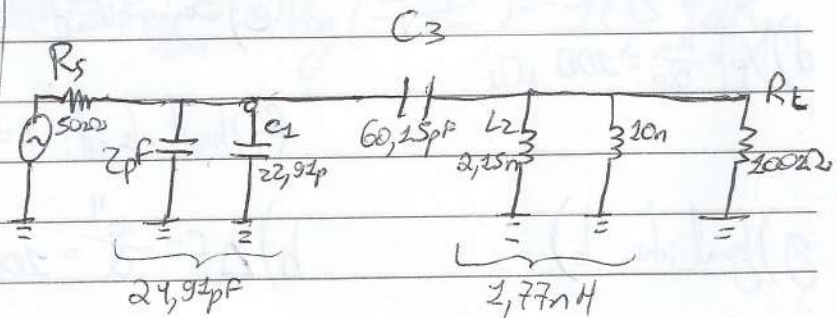 C3
Rs
50Ω
2pF
C1
22,91p
60,15pF
L2
2,15n
10n
Rt
100Ω
24,91pF
1,77nH